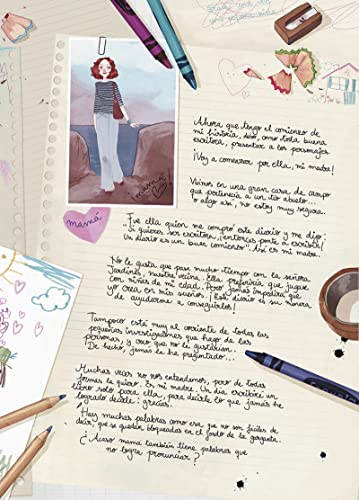 Ahora que tengo el comienzo de
mi historia, debo, como toda buena
escritora, presentar a los personajes.
¡Voy a comenzar por ella, mi madre!
Vivimos en una gran casa de campo
que pertenecía a un tío abuelo...
o algo así, no estoy muy segura.
mamá!
mamá
Fue ella quien me compró este diario y me dijo:
"Si quieres ser escritora, ¡entonces ponte a escribir!
Un diario es un buen comienzo". Así es mi madre.
No le gusta que pase mucho tiempo con la señora
Jardines, nuestra vecina. Ella preferiría que jugase
con niñas de mi edad. Pero ¡jamás impediría que
yo crea en mis sueños! Este diario es su manera
de ayudarme a conseguirlos!
Tampoco está muy al corriente de todas las
pequeñas investigaciones que hago de las
personas, y creo que no le gustarían.
De hecho, jamás le he preguntado...
Muchas veces no nos entendemos, pero de todas
formas la quiero. Es mi madre. Un día escribiré un
libro solo para ella, para decirle lo que jamás he
logrado decirle: gracias.
Hay muchas palabras como esa que no son fáciles de
decir, que se quedan bloqueadas en el fondo de la garganta.
¿Acaso mamá también tiene palabras que
no logra pronunciar?